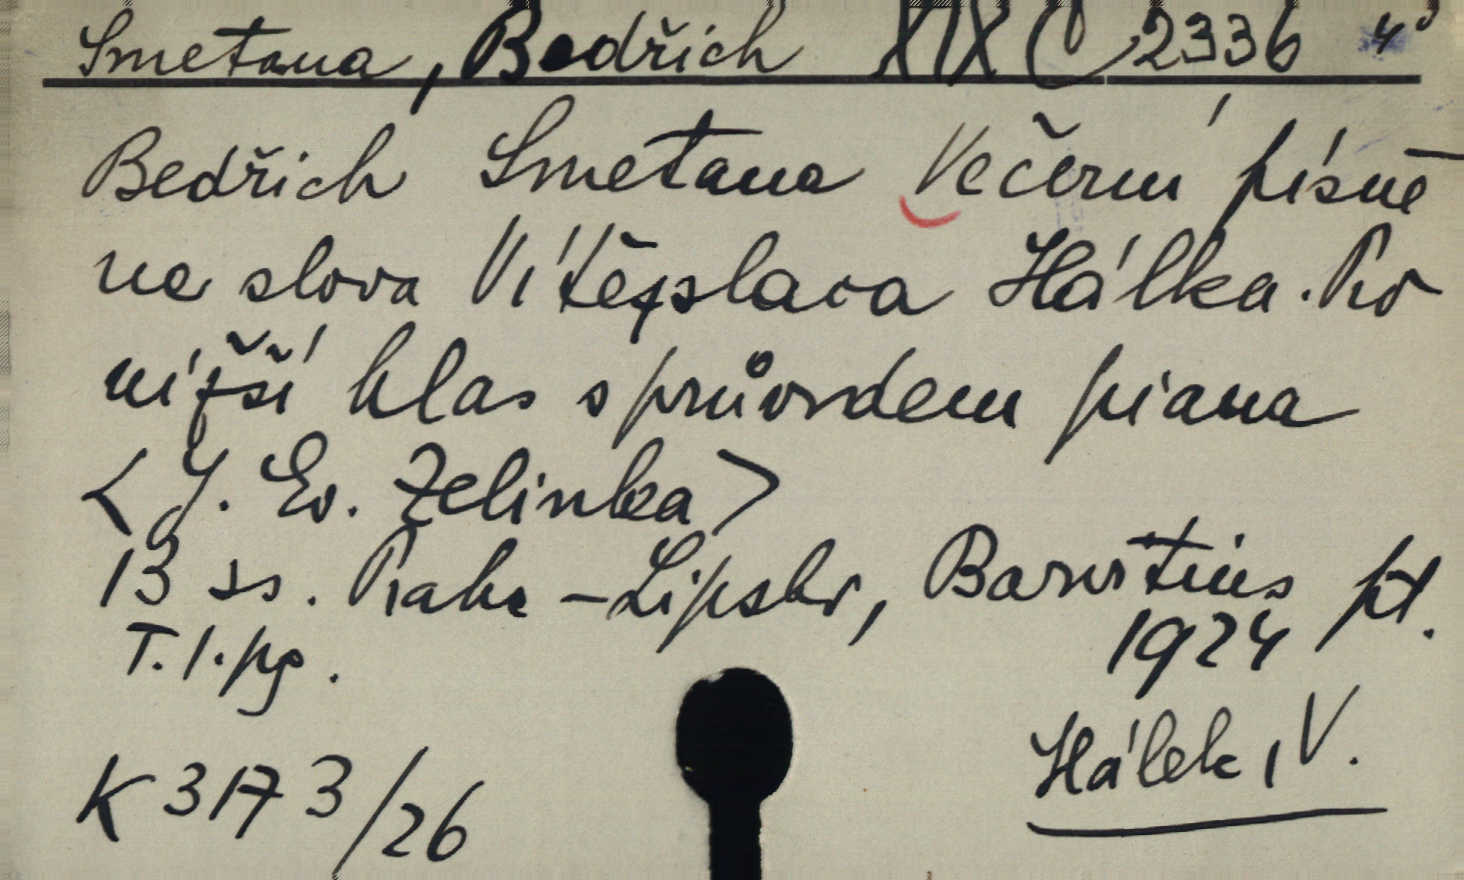 Smetana, Bedřich XIX C 2336 4°
Bedřich Smetana Večerní písně
na slova Vítězslava Hálka. Pro
nižší hlas s průvodem piana
<J. Ev. Zelinka>
13 ss. Praha - Lipsko, Barvitius pt.
T. 1. pg. 1924
Hálek, V.
K 3173/26